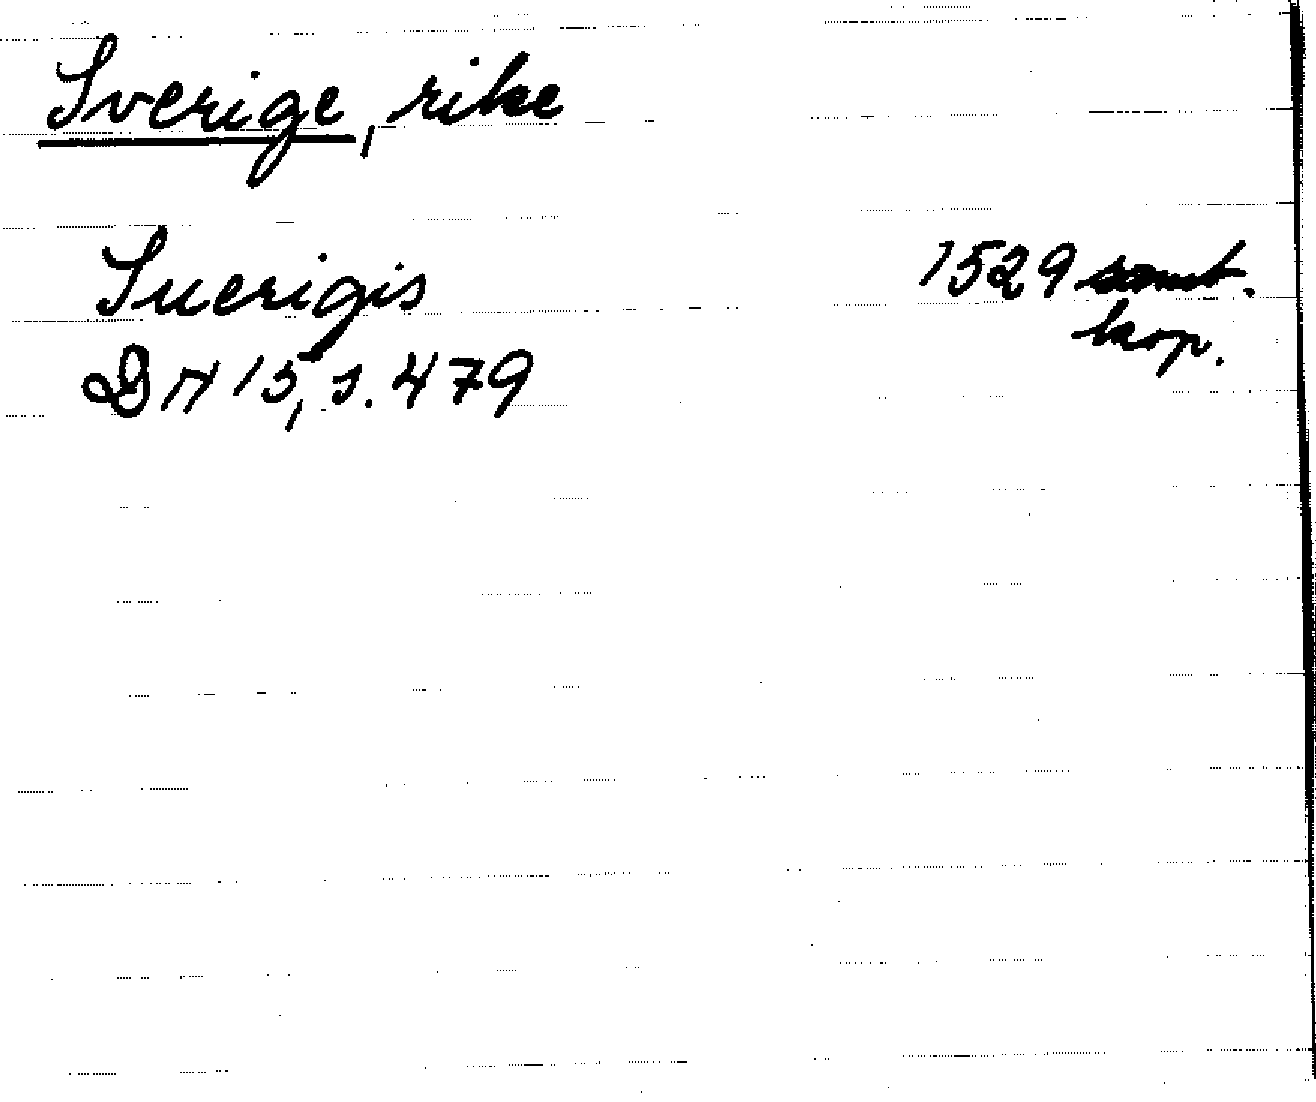 Sverige, rike
Suerigis 1529 samt.
kop.
DN 15, s. 479